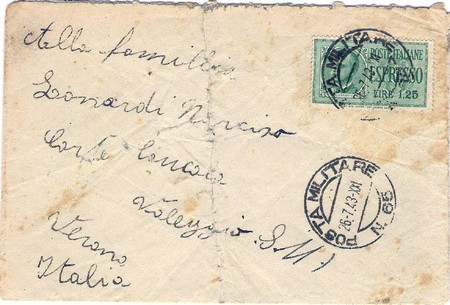 Alla famiglia
Leonardi Narciso
Corte
Valeggio S.M.
Verona
Italia
POSTE ITALIANE
ESPRESSO
LIRE 1.25
POSTA MILITARE
POSTA MILITARE N. 59
26.7.43.XXI